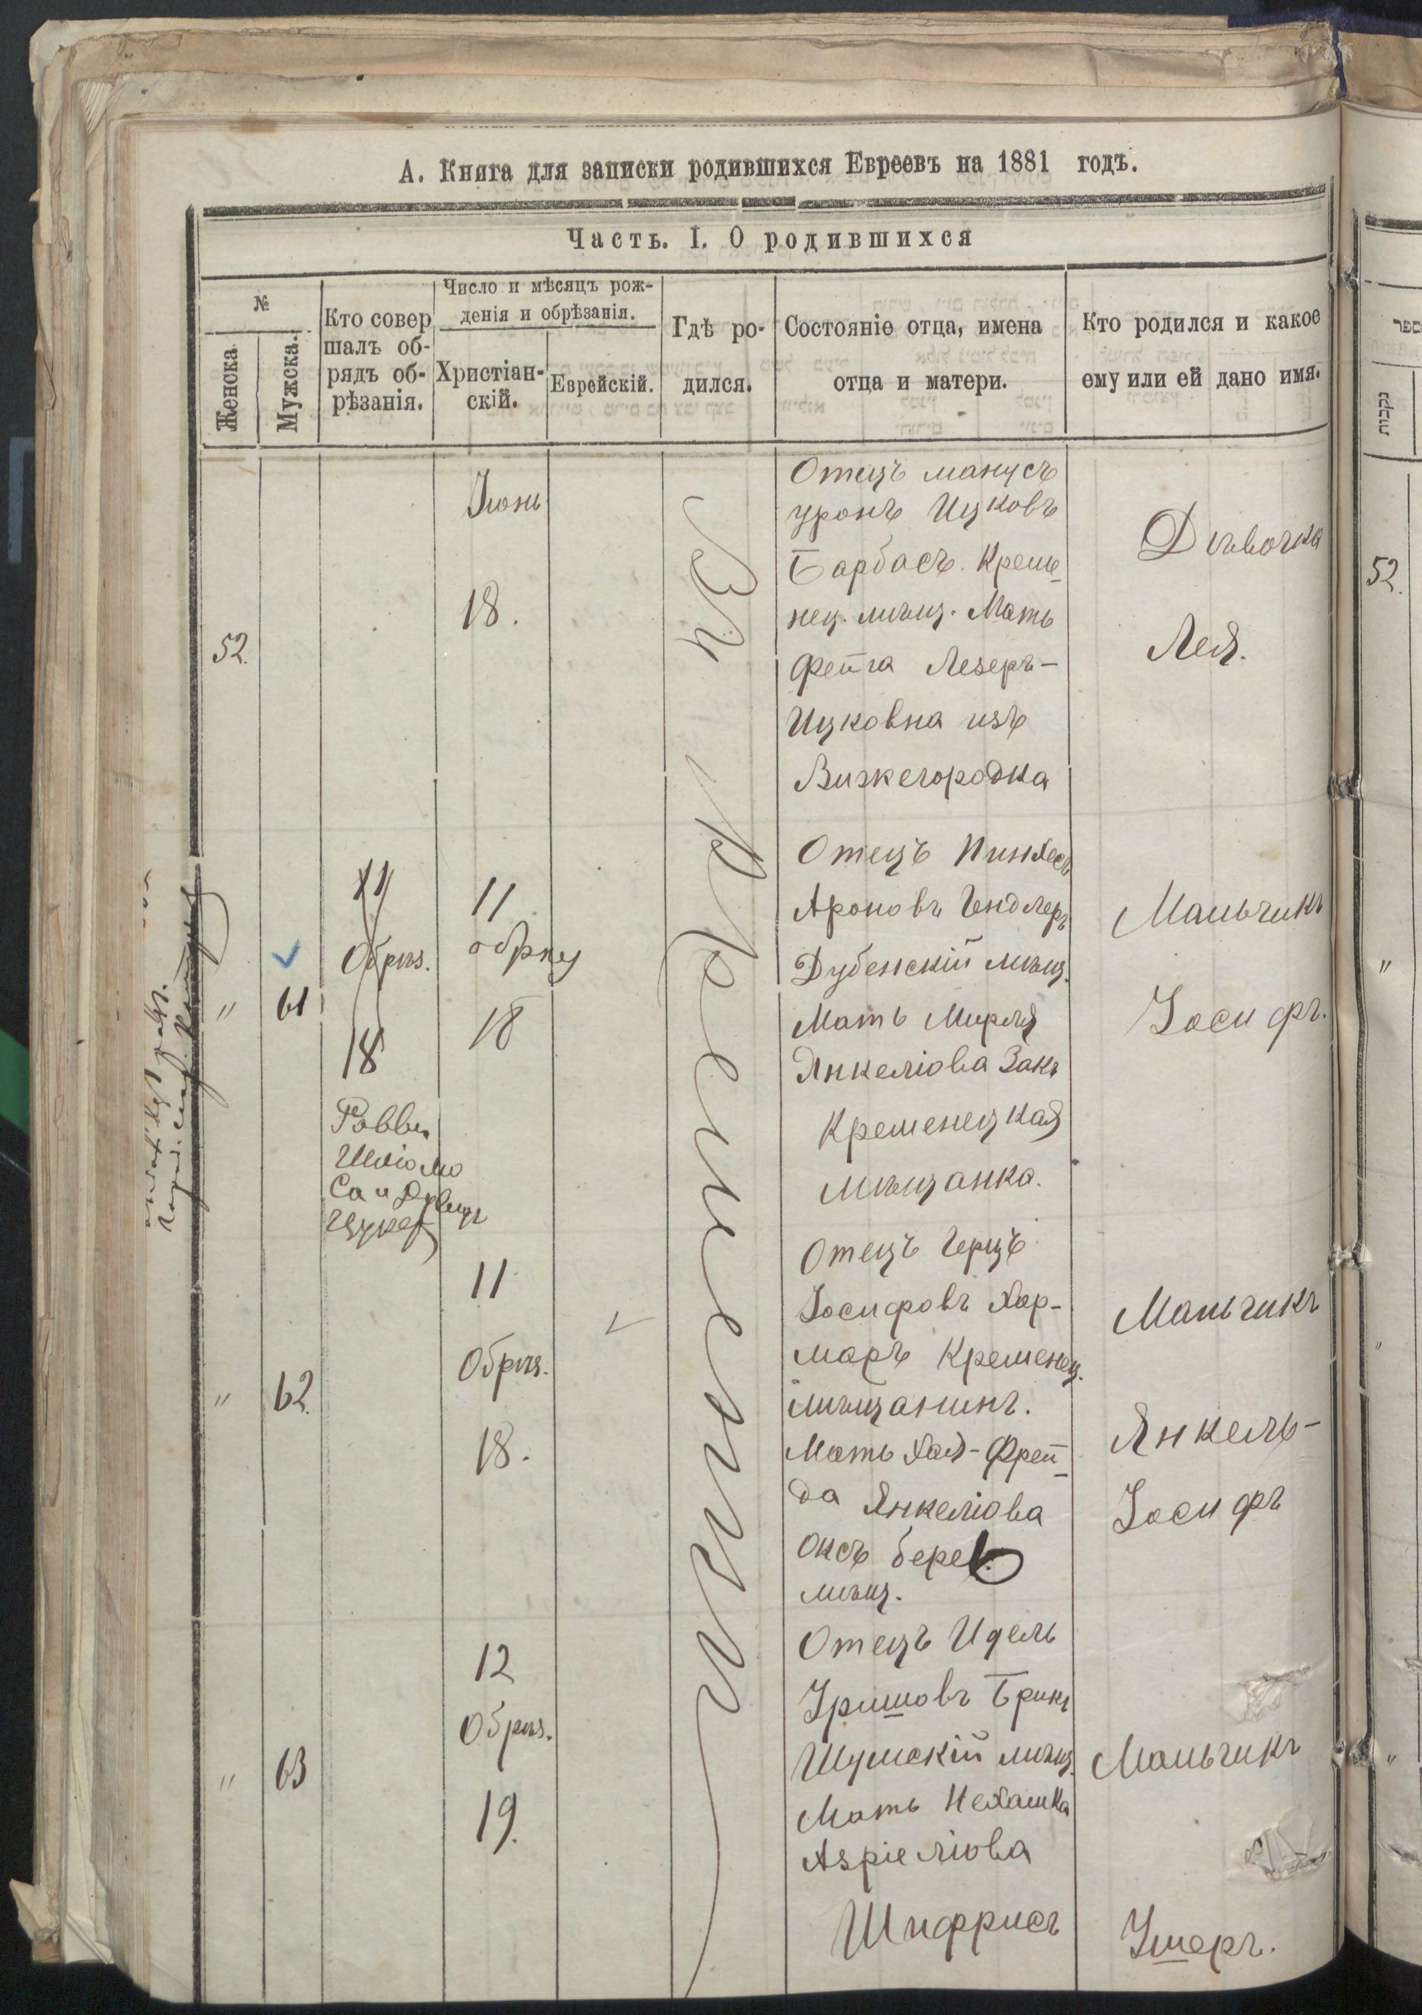 А. Книга для записки родившихся Евреевъ на 1881 годъ.
Часть. I. О родившихся
№
Женска
Мужска.
Кто совер
шалъ об-
рядъ об-
рѣзанія.
Число и мѣсяцъ рож-
денія и обрѣзанія.
Христіан-
скій.
Еврейскій.
Гдѣ ро-
дился.
Состояніе отца, имена
отца и матери.
Кто родился и какое
ему или ей дано имя.
Въ Кременцѣ
52.
Іюнь
18.
Отецъ Манусъ
Уронъ Ицковъ
Барбасъ. Креме-
нец. мѣщ. Мать
Фейга Лезеръ-
Ицковна изъ
Вижегородка
Дѣвочка
Лея.
"
61
11
Обрѣз.
18
Равви
Шліомо
Цукер
11
18
Отецъ Пинхесъ
Ароновъ Гендлеръ
Дубенскій мѣщ.
Мать Мирля
Янкеліова Закъ
Кременецкая
мѣщанка.
Мальчикъ
Іосифъ.
"
62.
11
Обрѣз.
18.
Отецъ Герцъ
Іосифовъ Хар-
маръ Кременец.
мѣщанинъ.
Мать Хая-Фрей-
да Янкеліова
Оксъ Берез.
мѣщ.
Мальчикъ
Янкель-
Іосифъ
"
63
12
Обрѣз.
19.
Отецъ Идель
Гришовъ Брикъ
Шумскій мѣщ.
Мать Нехамка
Азріеліова
Шифрисъ
Мальчикъ
Ушеръ.
52.
"
"
"